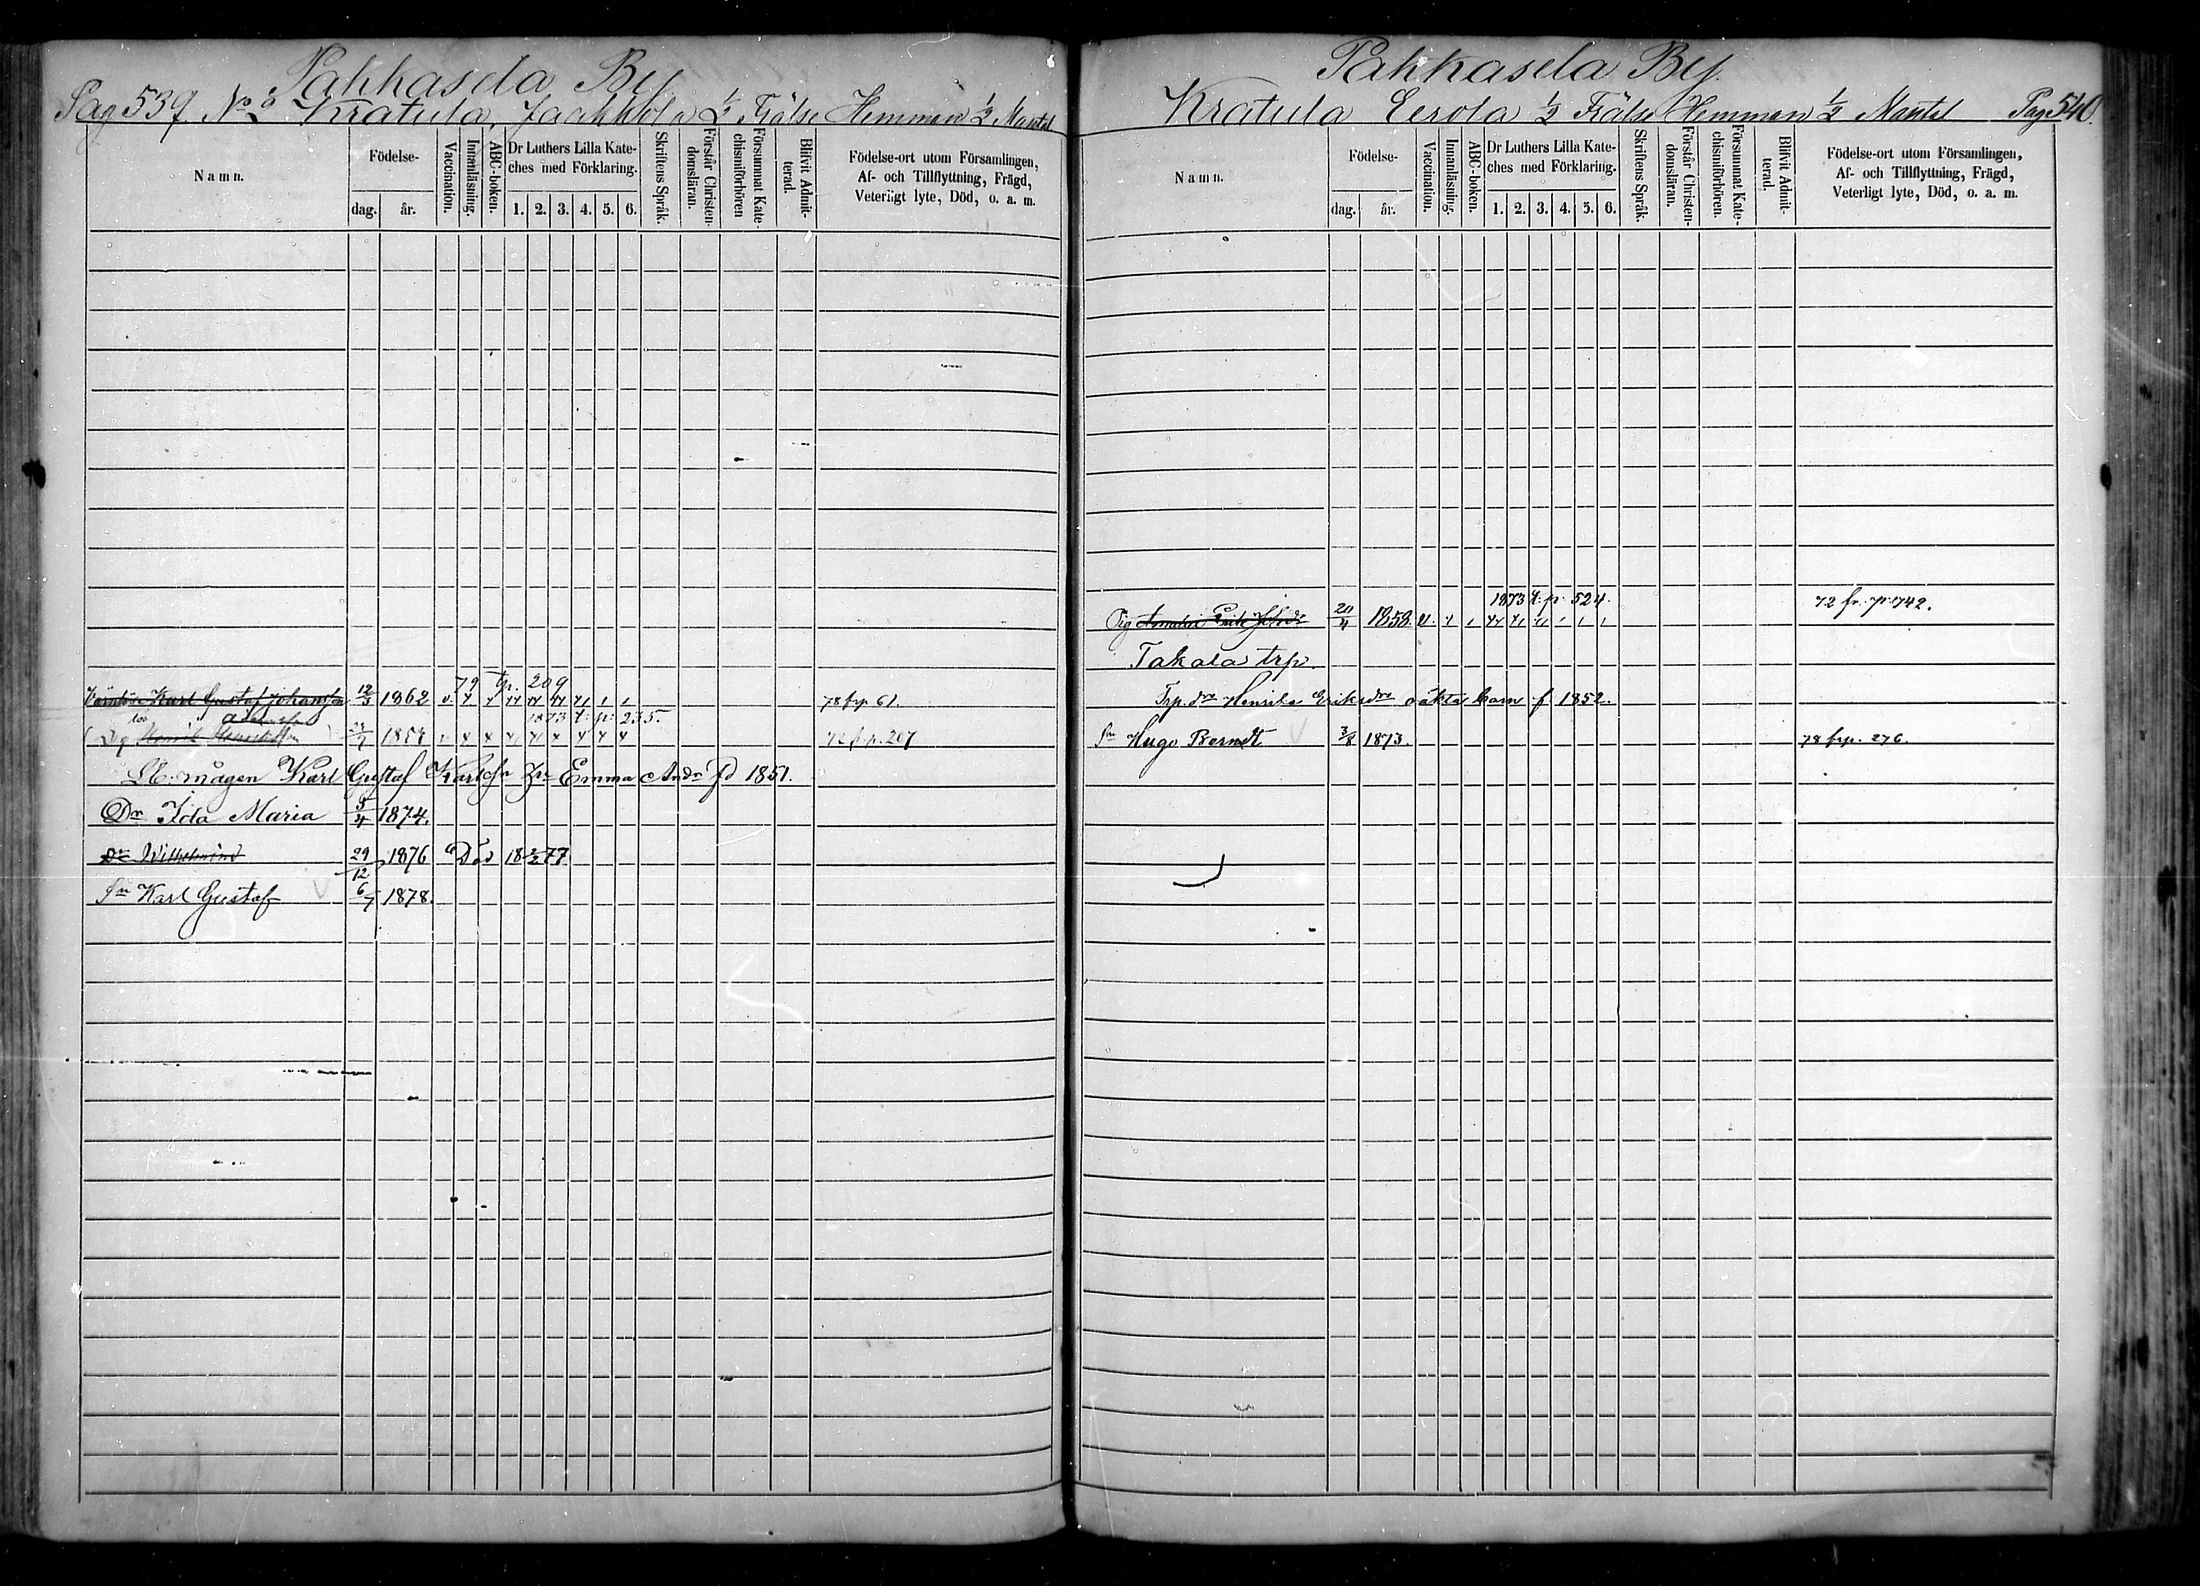 Pakkasela By.
Pag 539. No 2 Kratula, Jaakkola ½ Frälse Hemman ½ Mantal
Namn.
Födelse-
dag. år.
Vaccination.
Innanläsning.
ABC-boken.
Dr Luthers Lilla Kate-
ches med Förklaring.
1. 2. 3. 4. 5. 6.
Skriftens Språk.
Förstår Christen-
domsläran.
Försummat Kate-
chismiförhören
Blifvit Admit-
terad.
Födelse-ort utom Församlingen,
Af- och Tillflyttning, Frägd,
Veterligt lyte, Död, o. a. m.
79 tp. 209
Karl Gustaf Johansson 12/3 1862 78 frp. 61.
1873 t. p. 235.
Dg Henrik 72 f. p. 207
Karl Gustaf Karlsson Emma And. f 1851.
Dr Ida Maria 5/4 1874.
Dr Wilhelmina 29/12 1876 Död 18 2/2 77
Sn Karl Gustaf 6/7 1878.
Pakkasela By.
Kratula Eerola ½ Frälse Hemman ½ Mantal Pag 540.
Namn.
Födelse-
dag. år.
Vaccination.
Innanläsning.
ABC-boken.
Dr Luthers Lilla Kate-
ches med Förklaring.
1. 2. 3. 4. 5. 6.
Skriftens Språk.
Förstår Christen-
domsläran.
Försummat Kate-
chismiförhören.
Blifvit Admit-
terad.
Födelse-ort utom Församlingen,
Af- och Tillflyttning, Frägd,
Veterligt lyte, Död, o. a. m.
1873 t. p. 524. 72 fr. p. 1742.
Pig Amalia Erik
Takala trp.
Trp. dra Henrika Eriksdra oäkta barn f. 1852.
Sn Hugo Berndt 3/8 1873. 78 frp. 276.